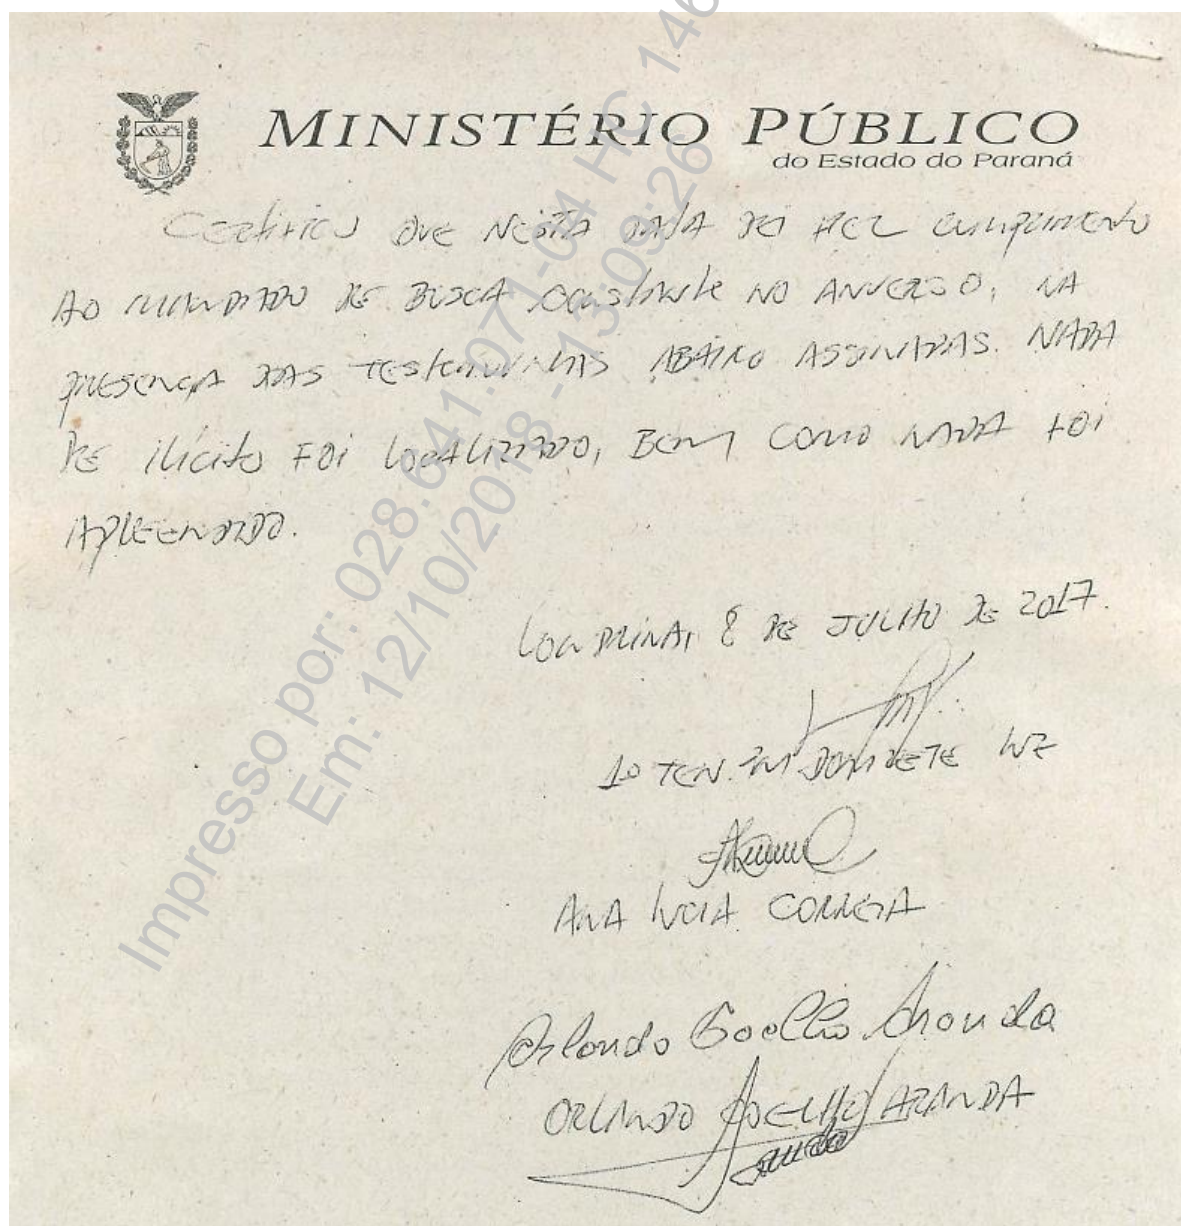 MINISTÉRIO PÚBLICO
do Estado do Paraná
Certifico que nesta data dei fiel cumprimento
ao mandado de busca constante no anverso, na
presença das testemunhas abaixo assinadas. Nada
de ilícito foi localizado, bem como nada foi
apreendido.
Londrina, 8 de julho de 2017.
1º Ten. PM
Ana Lucia Correia
Orlando Coelho Aranda
Orlando Coelho Aranda
Impresso por: 028.641.071-04 HC 146
Em: 12/10/2018 - 13:09:26